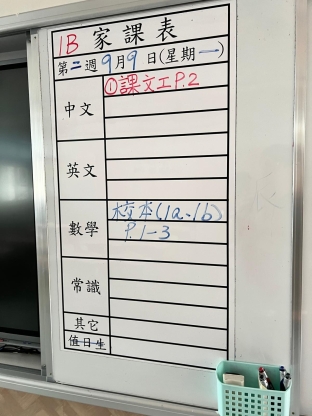 1B 家課表
第二週 9月9日(星期一)
中文 ①課文工P.2
英文
數學 校本(1a、1b)
P.1-3
常識
其它
值日生